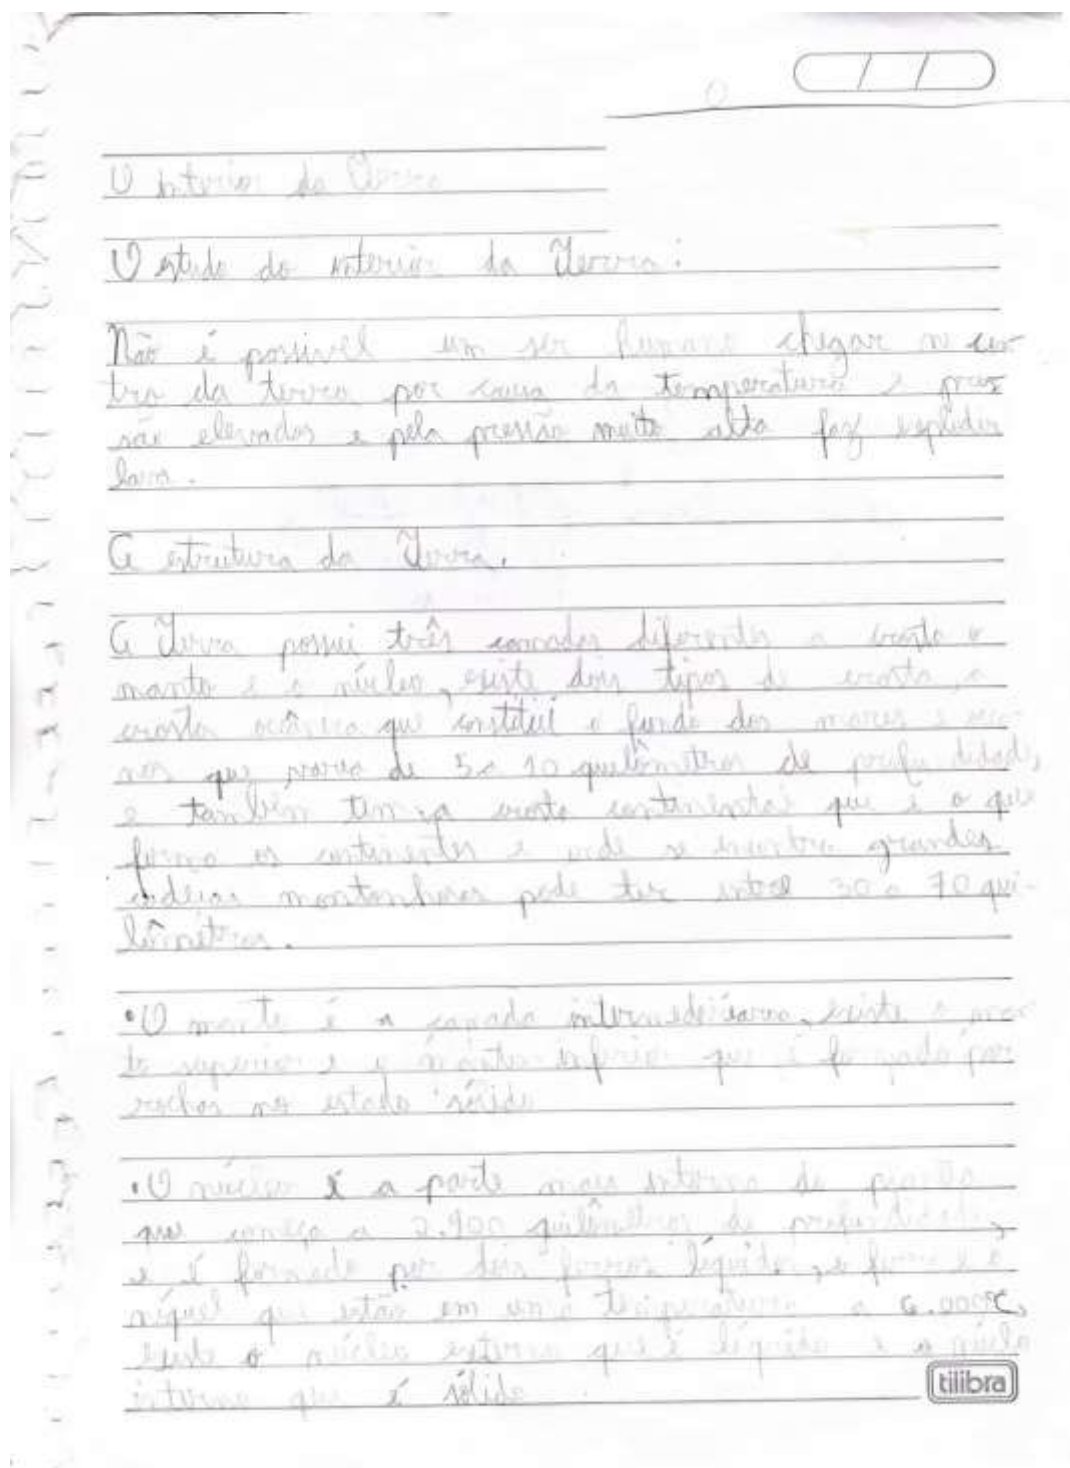 O interior da Terra
O estudo do interior da Terra:
Não é possivel um ser humano chegar no cen-
tro da terra por causa da temperatura e pres
são elevadas e pela pressão muito alta faz explodir
A estrutura da Terra.
A Terra possui três camadas diferentes a crosta o
manto e o núcleo, existe dois tipos de crosta, a
crosta que constitui o fundo dos mares e ocea-
nos que varia de 5 a 10 quilômetros de profundidade,
e também tem a crosta continental que é a que
forma os continentes e onde se encontra grandes
cadeias montanhosas pode ter entre 30 a 70 qui-
lômetros.
• O manto é a camada existe o man
to superior e o manto inferior que é formado por
rochas no estado sólido
• O núcleo é a parte mais interna do
que começa a 2.900 quilômetros de profundidade,
e é formado por dois líquidos, o ferro e o
níquel que estão em uma temperatura a 6.000°C,
existe o núcleo externo que é líquido e o núcleo
interno que é sólido
tilibra